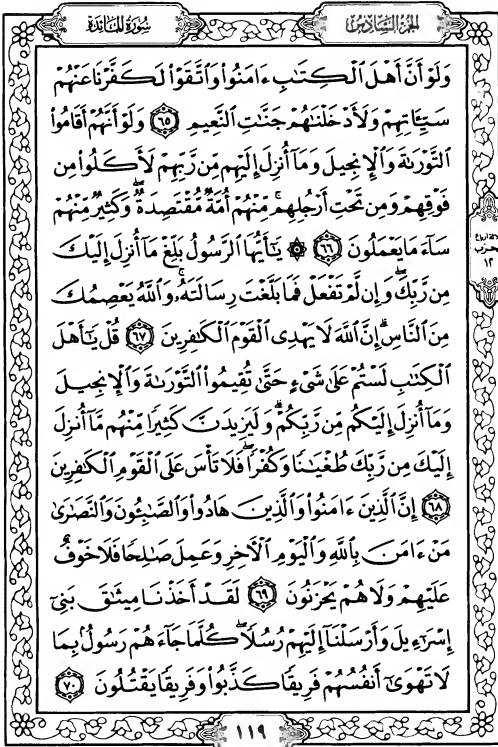 سُورَةُ المَائدَة
الجُزءُ السَّادِسُ
وَلَوْ أَنَّ أَهْلَ ٱلْكِتَٰبِ ءَامَنُوا۟ وَٱتَّقَوْا۟ لَكَفَّرْنَا عَنْهُمْ
سَيِّـَٔاتِهِمْ وَلَأَدْخَلْنَٰهُمْ جَنَّٰتِ ٱلنَّعِيمِ ٦٥ وَلَوْ أَنَّهُمْ أَقَامُوا۟
ٱلتَّوْرَىٰةَ وَٱلْإِنجِيلَ وَمَآ أُنزِلَ إِلَيْهِم مِّن رَّبِّهِمْ لَأَكَلُوا۟ مِن
فَوْقِهِمْ وَمِن تَحْتِ أَرْجُلِهِم ۚ مِّنْهُمْ أُمَّةٌ مُّقْتَصِدَةٌ ۖ وَكَثِيرٌ مِّنْهُمْ
سَآءَ مَا يَعْمَلُونَ ٦٦ ۞ يَٰٓأَيُّهَا ٱلرَّسُولُ بَلِّغْ مَآ أُنزِلَ إِلَيْكَ
مِن رَّبِّكَ ۖ وَإِن لَّمْ تَفْعَلْ فَمَا بَلَّغْتَ رِسَالَتَهُۥ ۚ وَٱللَّهُ يَعْصِمُكَ
مِنَ ٱلنَّاسِ ۗ إِنَّ ٱللَّهَ لَا يَهْدِى ٱلْقَوْمَ ٱلْكَٰفِرِينَ ٦٧ قُلْ يَٰٓأَهْلَ
ٱلْكِتَٰبِ لَسْتُمْ عَلَىٰ شَىْءٍ حَتَّىٰ تُقِيمُوا۟ ٱلتَّوْرَىٰةَ وَٱلْإِنجِيلَ
وَمَآ أُنزِلَ إِلَيْكُم مِّن رَّبِّكُمْ ۗ وَلَيَزِيدَنَّ كَثِيرًا مِّنْهُم مَّآ أُنزِلَ
إِلَيْكَ مِن رَّبِّكَ طُغْيَٰنًا وَكُفْرًا ۖ فَلَا تَأْسَ عَلَى ٱلْقَوْمِ ٱلْكَٰفِرِينَ
٦٨ إِنَّ ٱلَّذِينَ ءَامَنُوا۟ وَٱلَّذِينَ هَادُوا۟ وَٱلصَّٰبِـُٔونَ وَٱلنَّصَٰرَىٰ
مَنْ ءَامَنَ بِٱللَّهِ وَٱلْيَوْمِ ٱلْءَاخِرِ وَعَمِلَ صَٰلِحًا فَلَا خَوْفٌ
عَلَيْهِمْ وَلَا هُمْ يَحْزَنُونَ ٦٩ لَقَدْ أَخَذْنَا مِيثَٰقَ بَنِىٓ
إِسْرَٰٓءِيلَ وَأَرْسَلْنَآ إِلَيْهِمْ رُسُلًا ۖ كُلَّمَا جَآءَهُمْ رَسُولٌۢ بِمَا
لَا تَهْوَىٰٓ أَنفُسُهُمْ فَرِيقًا كَذَّبُوا۟ وَفَرِيقًا يَقْتُلُونَ ٧٠
١١٩